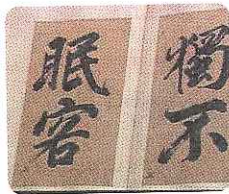 獨不
眠客